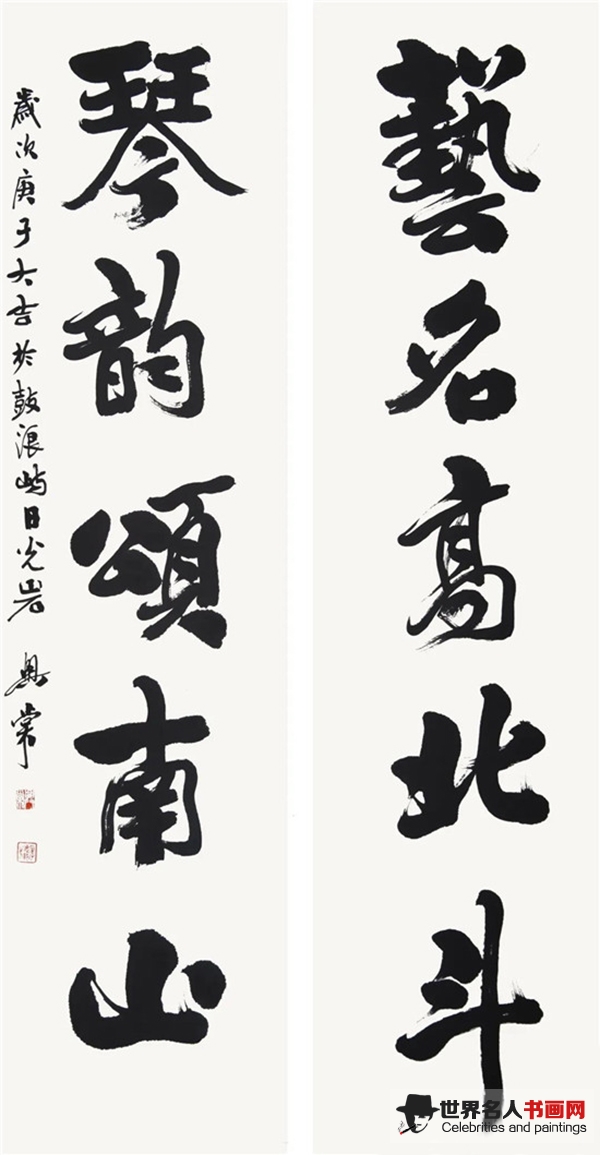 藝名高北斗
琴韵頌南山
歲次庚子大吉於鼓浪嶼日光岩
世界名人书画网
Celebrities and paintings